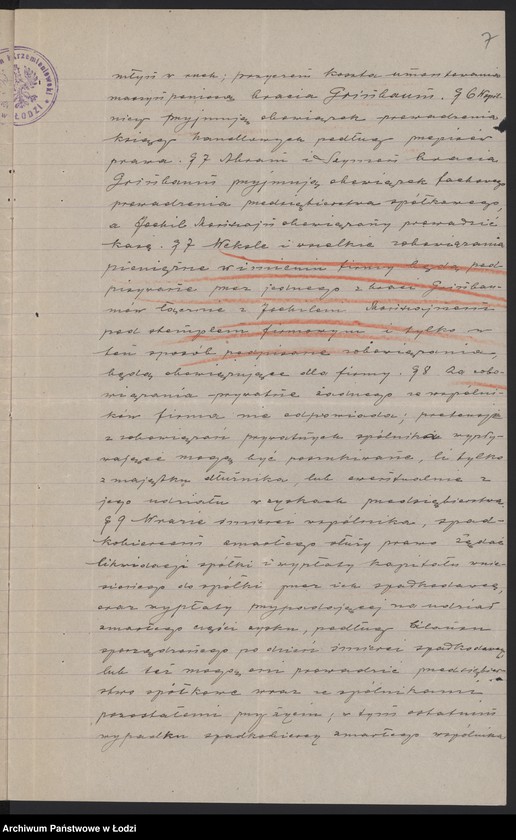 7
młyń w ruch; przyczem koszta umontowania
maszyń poniosą bracia Grinbaum. § 6 Wspól-
nicy przyjmują obowiązek prowadzenia
ksiąg handlowych podług przepisów
prawa. § 7 Abram i Szymon bracia
Grinbaum przyjmują obowiązek fachowego
prowadzenia przedsiębiorstwa spółkowego,
a Jochil obowiązany prowadzić
kasę. § 7 Weksle i wszelkie zobowiązania
pieniężne w imieniu firmy będą pod-
pisywane przez jednego z braci Grinbau-
mów łącznie z Jochilem
pod stemplem firmowym i tylko w
ten sposób podpisane zobowiązania,
będą obowiązujące dla firmy. § 8 Za zobo-
wiązania prywatne żadnego ze wspólni-
ków firma nie odpowiada; pretensje
z zobowiązań prywatnych spólnika wypły-
wające mogą być poszukiwane, li tylko
z majątku dłużnika, lub ewentualnie z
jego udziału w zyskach przedsiębiorstwa
§ 9 W razie śmierci wspólnika, spad-
kobiercom zmarłego służy prawo żądać
likwidacji spółki i wypłaty kapitału wnie-
sionego do spółki przez ich spadkodawcę,
oraz wypłaty przypadającej na udział
zmarłego części zysku, podług bilansu
sporządzonego po dzień śmierci spadkodawcy
lub też mogą oni prowadzić przedsiębior-
stwo spółkowe wraz ze spólnikami
pozostałemi przy życiu; w tym ostatnim
wypadku spadkobiercy zmarłego wspólnika
Archiwum Państwowe w Łodzi